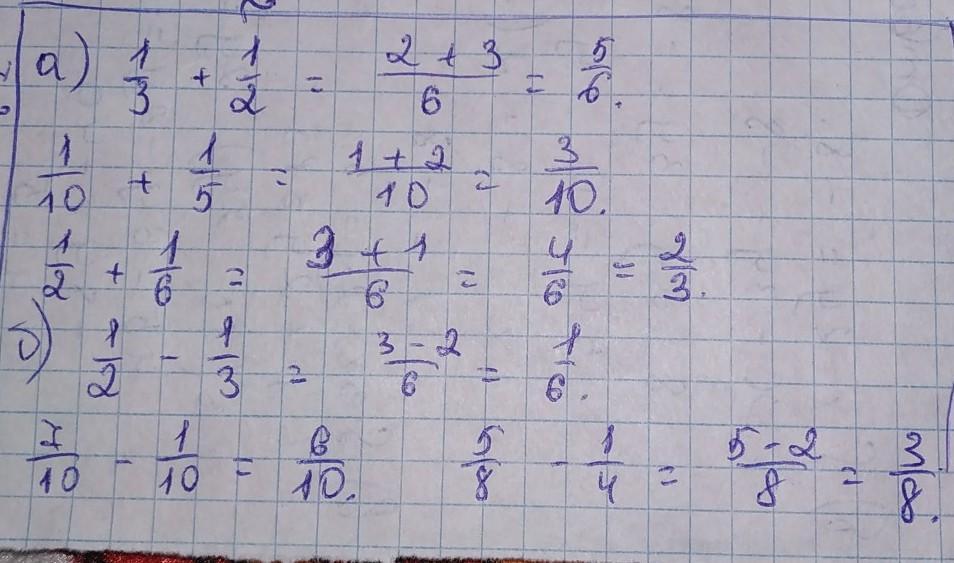 а) 1/3 + 1/2 = (2 + 3)/6 = 5/6.
1/10 + 1/5 = (1 + 2)/10 = 3/10.
1/2 + 1/6 = (3 + 1)/6 = 4/6 = 2/3.
б) 1/2 - 1/3 = (3 - 2)/6 = 1/6.
7/10 - 1/10 = 6/10. 5/8 - 1/4 = (5 - 2)/8 = 3/8.